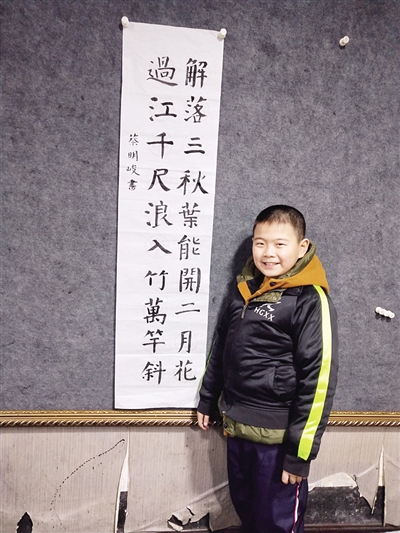 解落三秋葉能開二月花
過江千尺浪入竹萬竿斜
蔡明峻書
HGXX